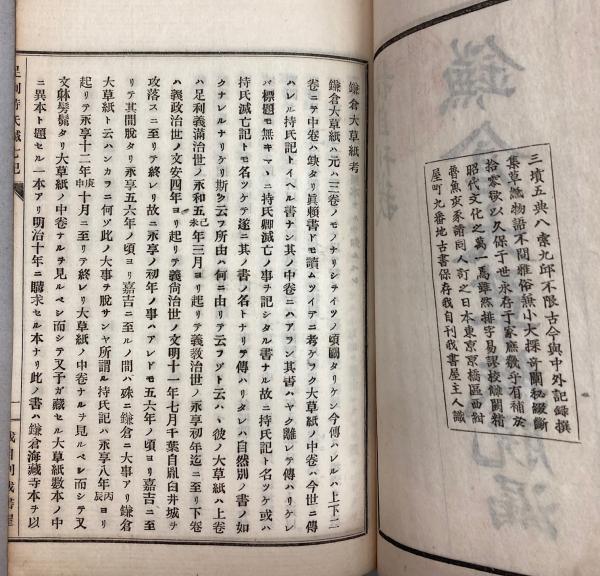 三墳五典八索九邱不限古今與中外記録撰
集草紙物語不問雅俗無小大探奇闡秘綴斷
拾零欲以久保于世永存于家庶幾乎有補於
昭代文化之萬一焉雖然排字易誤校讎闕精
魯魚亥豕請同人訂之日本東京京橋區西紺
屋町九番地古書保存我自刊我書屋主人識
鎌倉大草紙考
鎌倉大草紙ハ元ハ三卷ノモノナリシテイツノ頃闕タリケン今傳ハレルハ上下二
卷ニテ中卷ハ缺タリ眞頼書ドモ讀ムツイテニ考ヘケラク大草紙ノ中卷ハ今世ニ傳
ハレル持氏記トイヘル書ナン其ノ中卷ニハアラン其書ハヤク離レテ傳ハリケレ
バ標題モ無キマヽニ持氏卿滅亡ノ事ヲ記シタル書ナル故ニ持氏記ト名ツケ或ハ
持氏滅亡記トモ名ツケテ遂ニ其ノ書ノ名トナリテ傳ハリタレハ自然別ノ書ノ如
クナレルナリケリ斯ク云フ所由ハ何ニ由リテ云フゾト云ハヾ彼ノ大草紙ハ上卷
ハ足利義滿治世ノ永和五己未年三月ヨリ起リテ義敎治世ノ永享初年迄ニ至リ下卷
ハ義政治世ノ文安四年ヨリ起リテ義尚治世ノ文明十一年七月千葉自胤臼井城ヲ
攻落スニ至リテ終レリ故ニ永享ノ初年ノ事ハアレドモ五六年ノ頃ヨリ嘉吉ニ至
リテ其間脱タリ永享五六年ノ頃ヨリ嘉吉ニ至ルノ間ハ殊ニ鎌倉ニ大事アリ鎌倉
大草紙ト云ハンカラニ何ゾ此ノ大事ヲ脱サンヤ所謂ル持氏記ハ永享八年丙辰ヨリ
起リテ永享十二年庚申十月ニ至リテ終レリ大草紙ノ中卷ナルヲ見ルベシ而シテ又
文躰髣髴タリ大草紙ノ中卷ナルヲ見ルベシ而シテ又予ガ藏セル大草紙數本ノ中
ニ異本ト題セル一本アリ明治十年ニ購求セル本ナリ此ノ書ハ鎌倉海藏寺本ヲ以
足利持氏滅亡記
我自刊我書屋